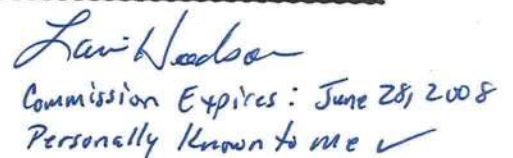 Commission Expires: June 28, 2008
Personally Known to me ✓